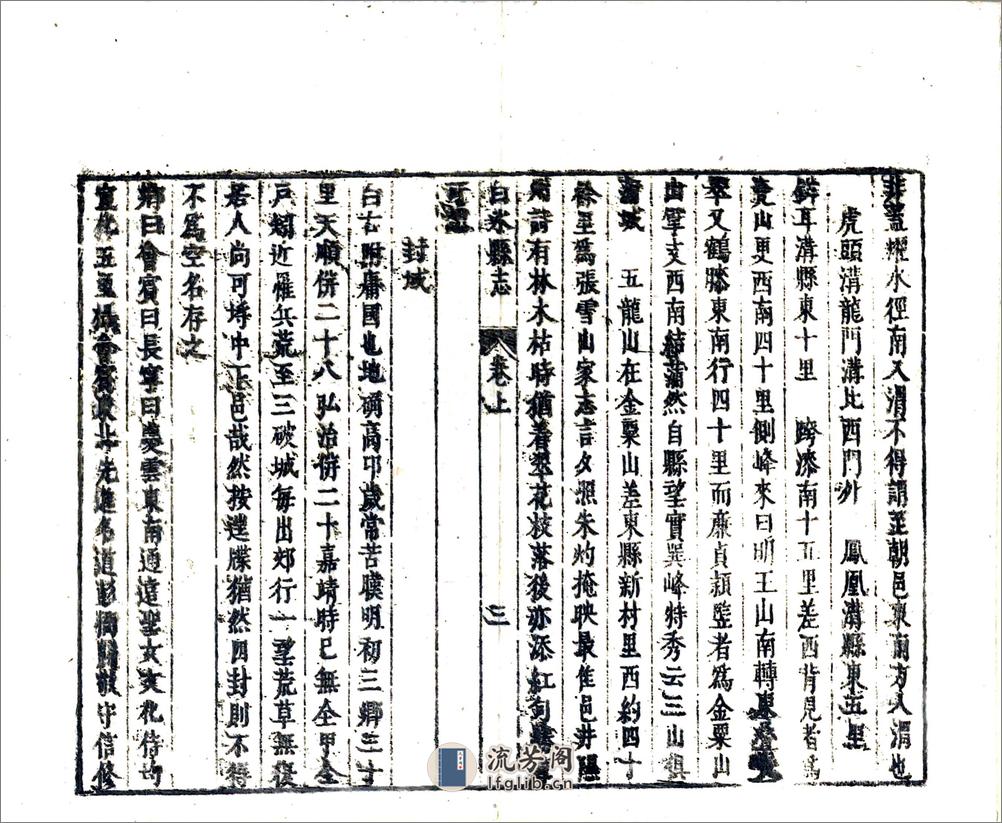 蓋經水徑南入渭不得謂至朝邑東南方入渭也
虎頭溝龍門溝比西門外　鳳凰溝縣東五里
鐸耳溝縣東十里　跨漆南十五里差西背見者爲
山更西南四十里側峰來曰明王山南轉東
翠又鶴膝東南行四十里而廉貞頴竪者爲金粟山
由單支西南結蒲然自縣望實巽峰特秀云三山鎮
蒲城　五龍山在金粟山差東縣新村里西約四十
餘里爲張雪山家志言夕照朱灼掩映最佳邑井
詩有林木枯時猶着翠花枝落後亦添紅句
白水縣志　卷上　三
可
封域
白右附庸國也地磽高卬歲常苦暵明初三鄉三十
里天順併二十八弘治併二十嘉靖時已無全甲全
戶頻近罹兵荒至三破城每出郊行一望荒草無復
居人尚可埓中下邑哉然按逮牒猶然四封則不得
不爲空名存之
鄉曰會賓曰長寧曰慶雲東南通遠聖女女化待
宣化五里攝會賓東北先進名道彭衙歸敬守信修